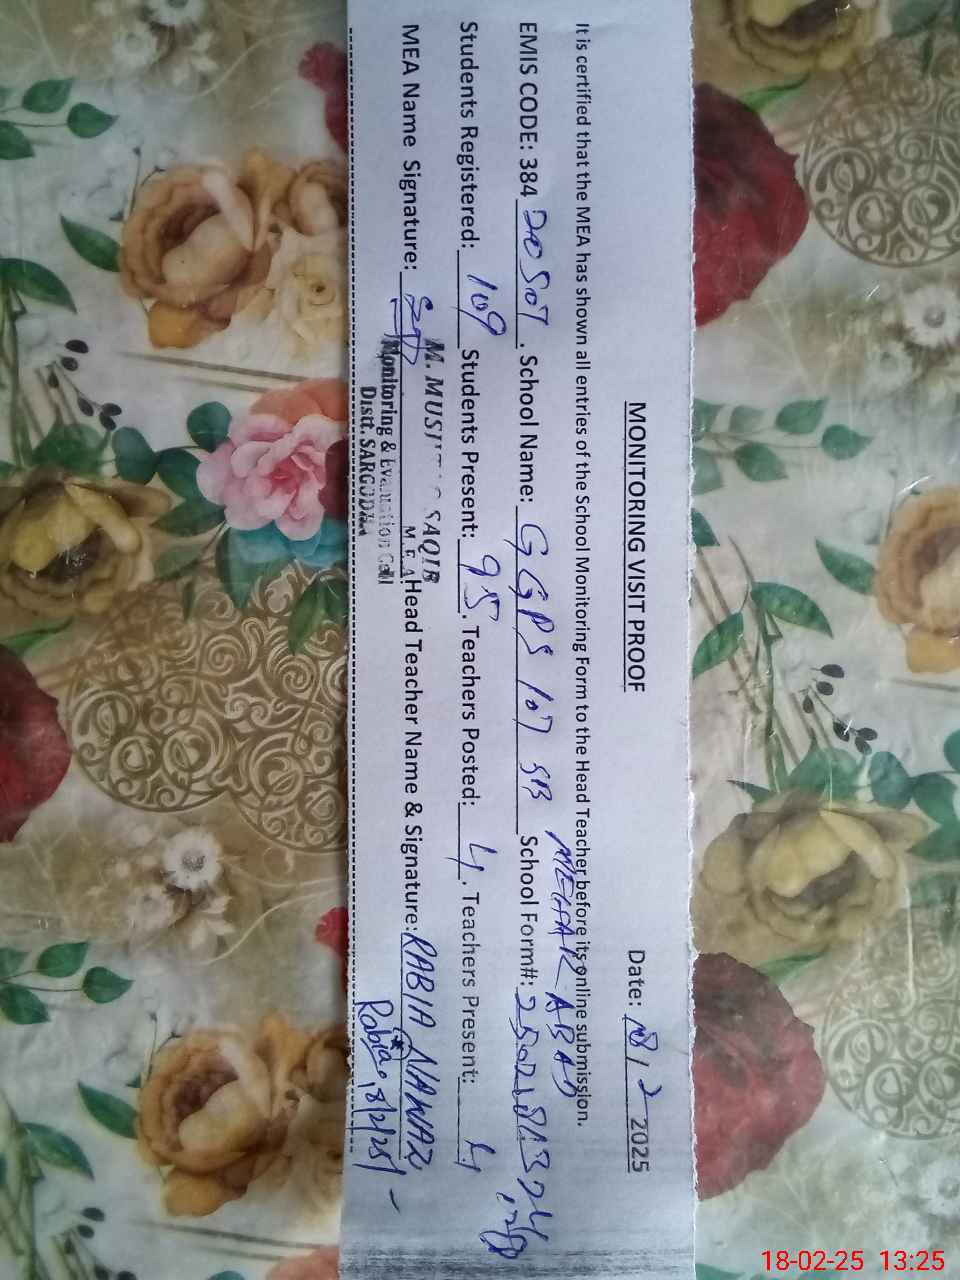 MONITORING VISIT PROOF
Date: 18 / 2 2025
It is certified that the MEA has shown all entries of the School Monitoring Form to the Head Teacher before its online submission.
MEHAR ABAD
EMIS CODE: 384 20507 . School Name: GGPS 107 SB School Form#:
Students Registered: 109 Students Present: 95 . Teachers Posted: 4 . Teachers Present: 4
M. SAQIB
M.E.A
MEA Name Signature: Head Teacher Name & Signature: RABIA NAWAZ
Monitoring & Evaluation Cell
Distt. SARGODHA
Rabia 18/2/25
18-02-25 13:25